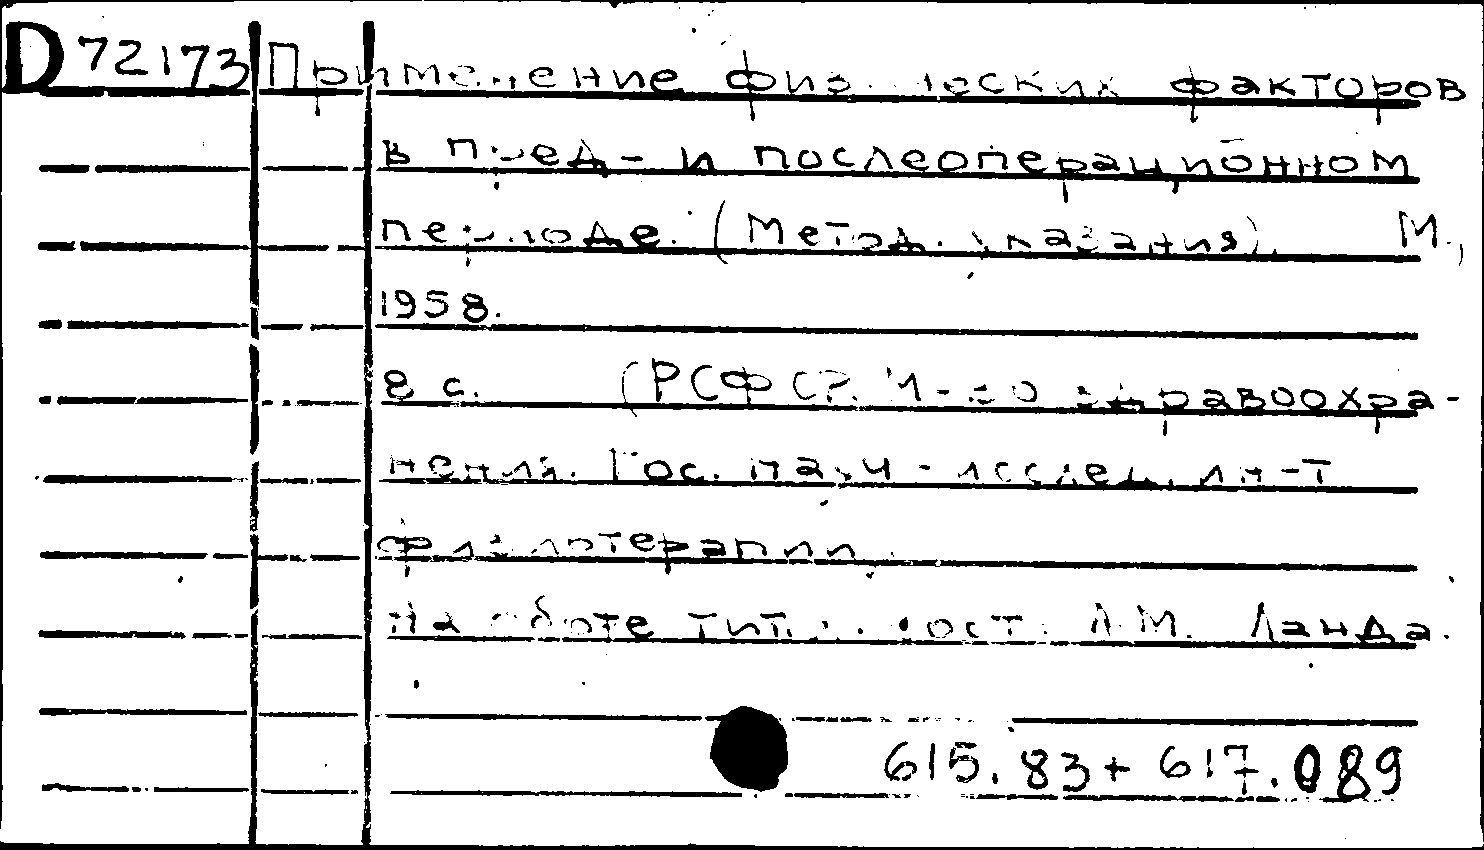 D 72173 Применение физических факторов
в пред- и послеоперационном
периоде. (Метод. указания). М.,
1958.
8 с. (РСФСР. М-во здравоохра-
нения. Гос. науч-исслед. ин-т
физиотерапии.
На обороте тит. л. сост. Л.М. Ланда.
615.83+617.089